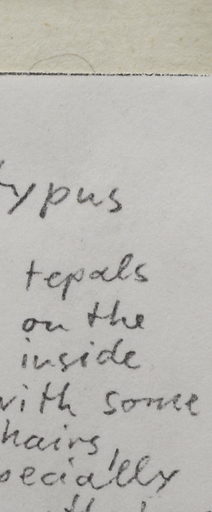 typus
tepals
on the
inside
with some
hairs,
pecially